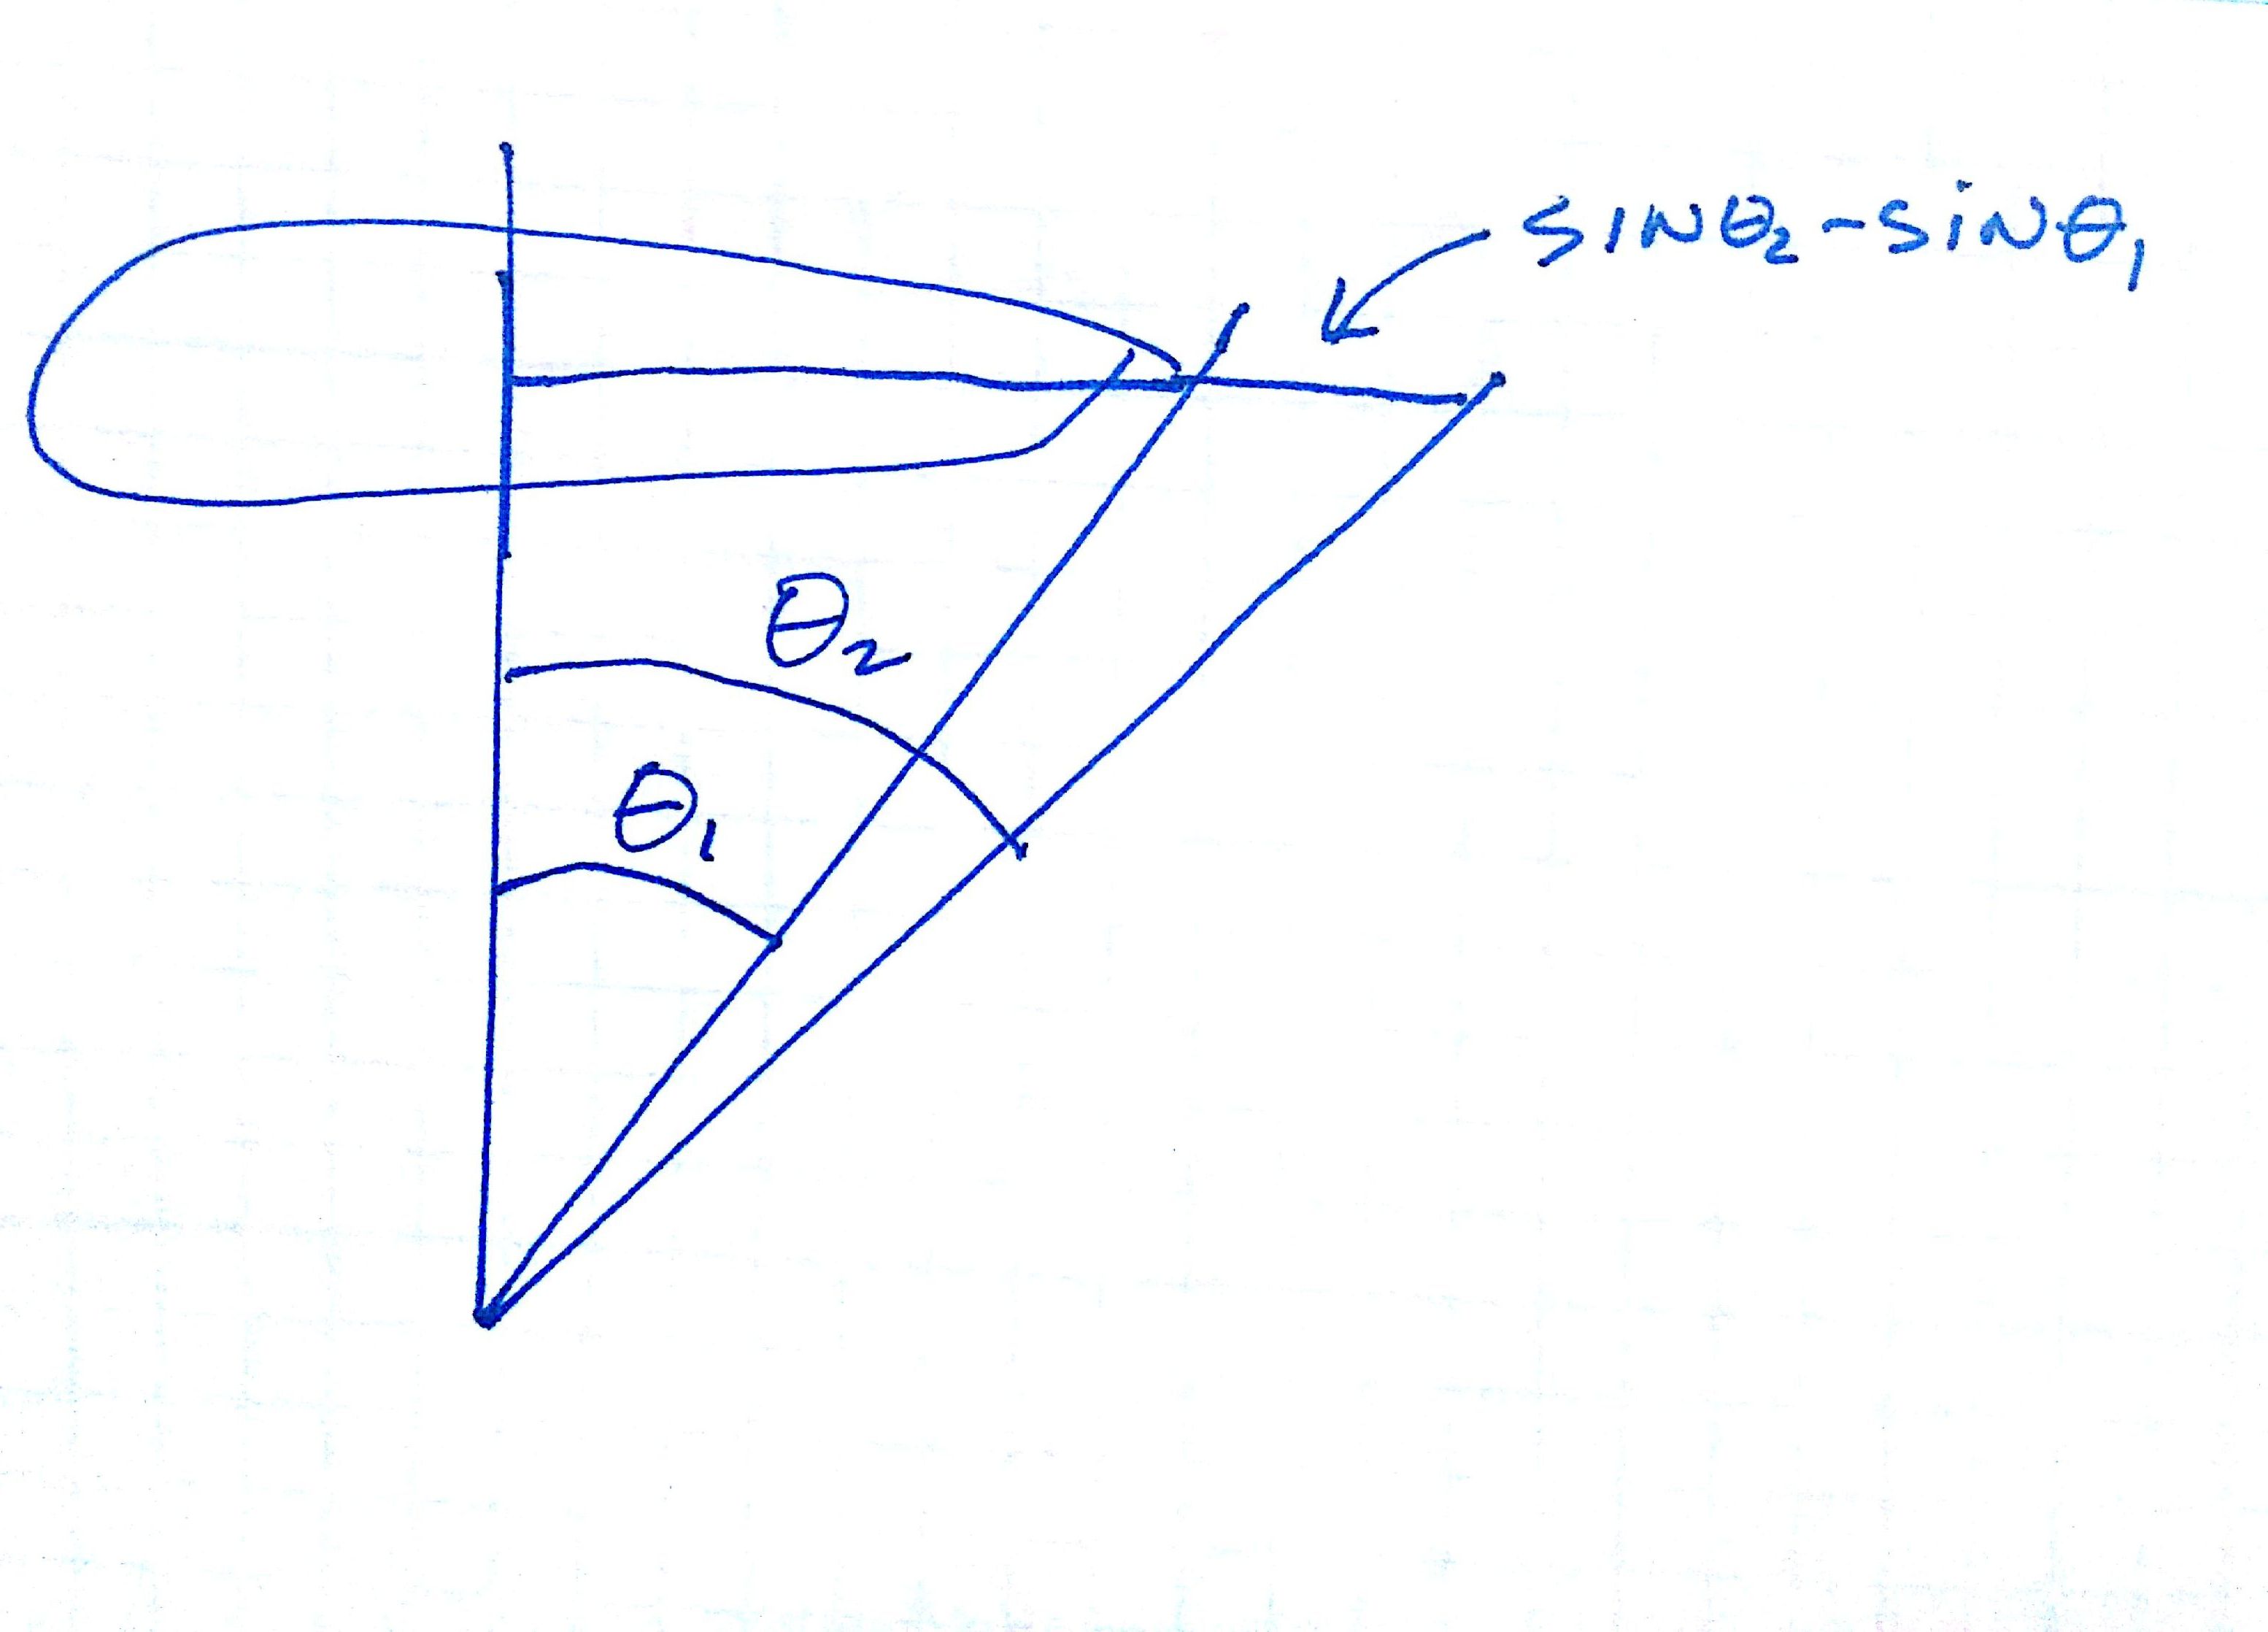 SINθ₂-SiNθ₁
θ₂
θ₁